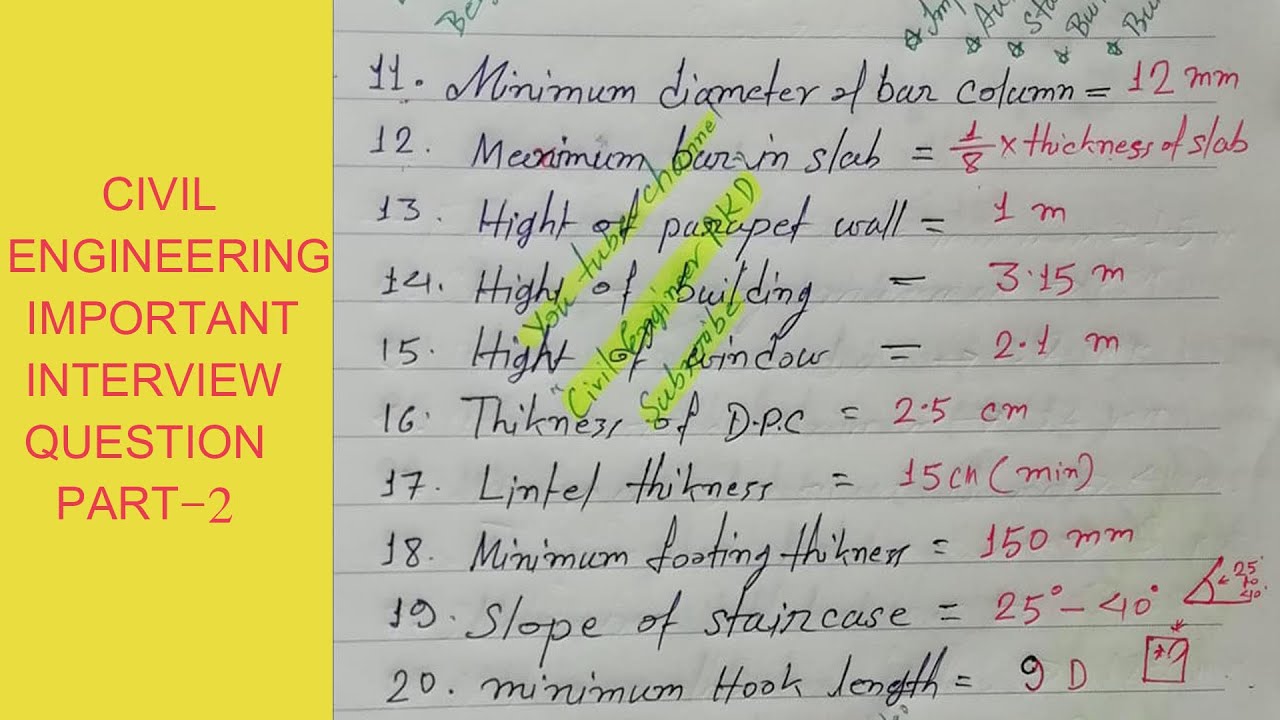 CIVIL
ENGINEERING
IMPORTANT
INTERVIEW
QUESTION
PART-2
11. Minimum diameter of bar column = 12 mm
12. Meximum bar in slab = 1/8 × thickness of slab
13. Hight of parapet wall = 1 m
14. Hight of building = 3.15 m
15. Hight of window = 2.1 m
16. Thikness of D.P.C = 2.5 cm
17. Lintel thikness = 15cm (min)
18. Minimum footing thikness = 150 mm
19. Slope of staircase = 25° - 40°
25°
to
40°
20. minimum Hook length = 9 D
*9
You tube channe
"Civil Engineer PKD
Subscribe